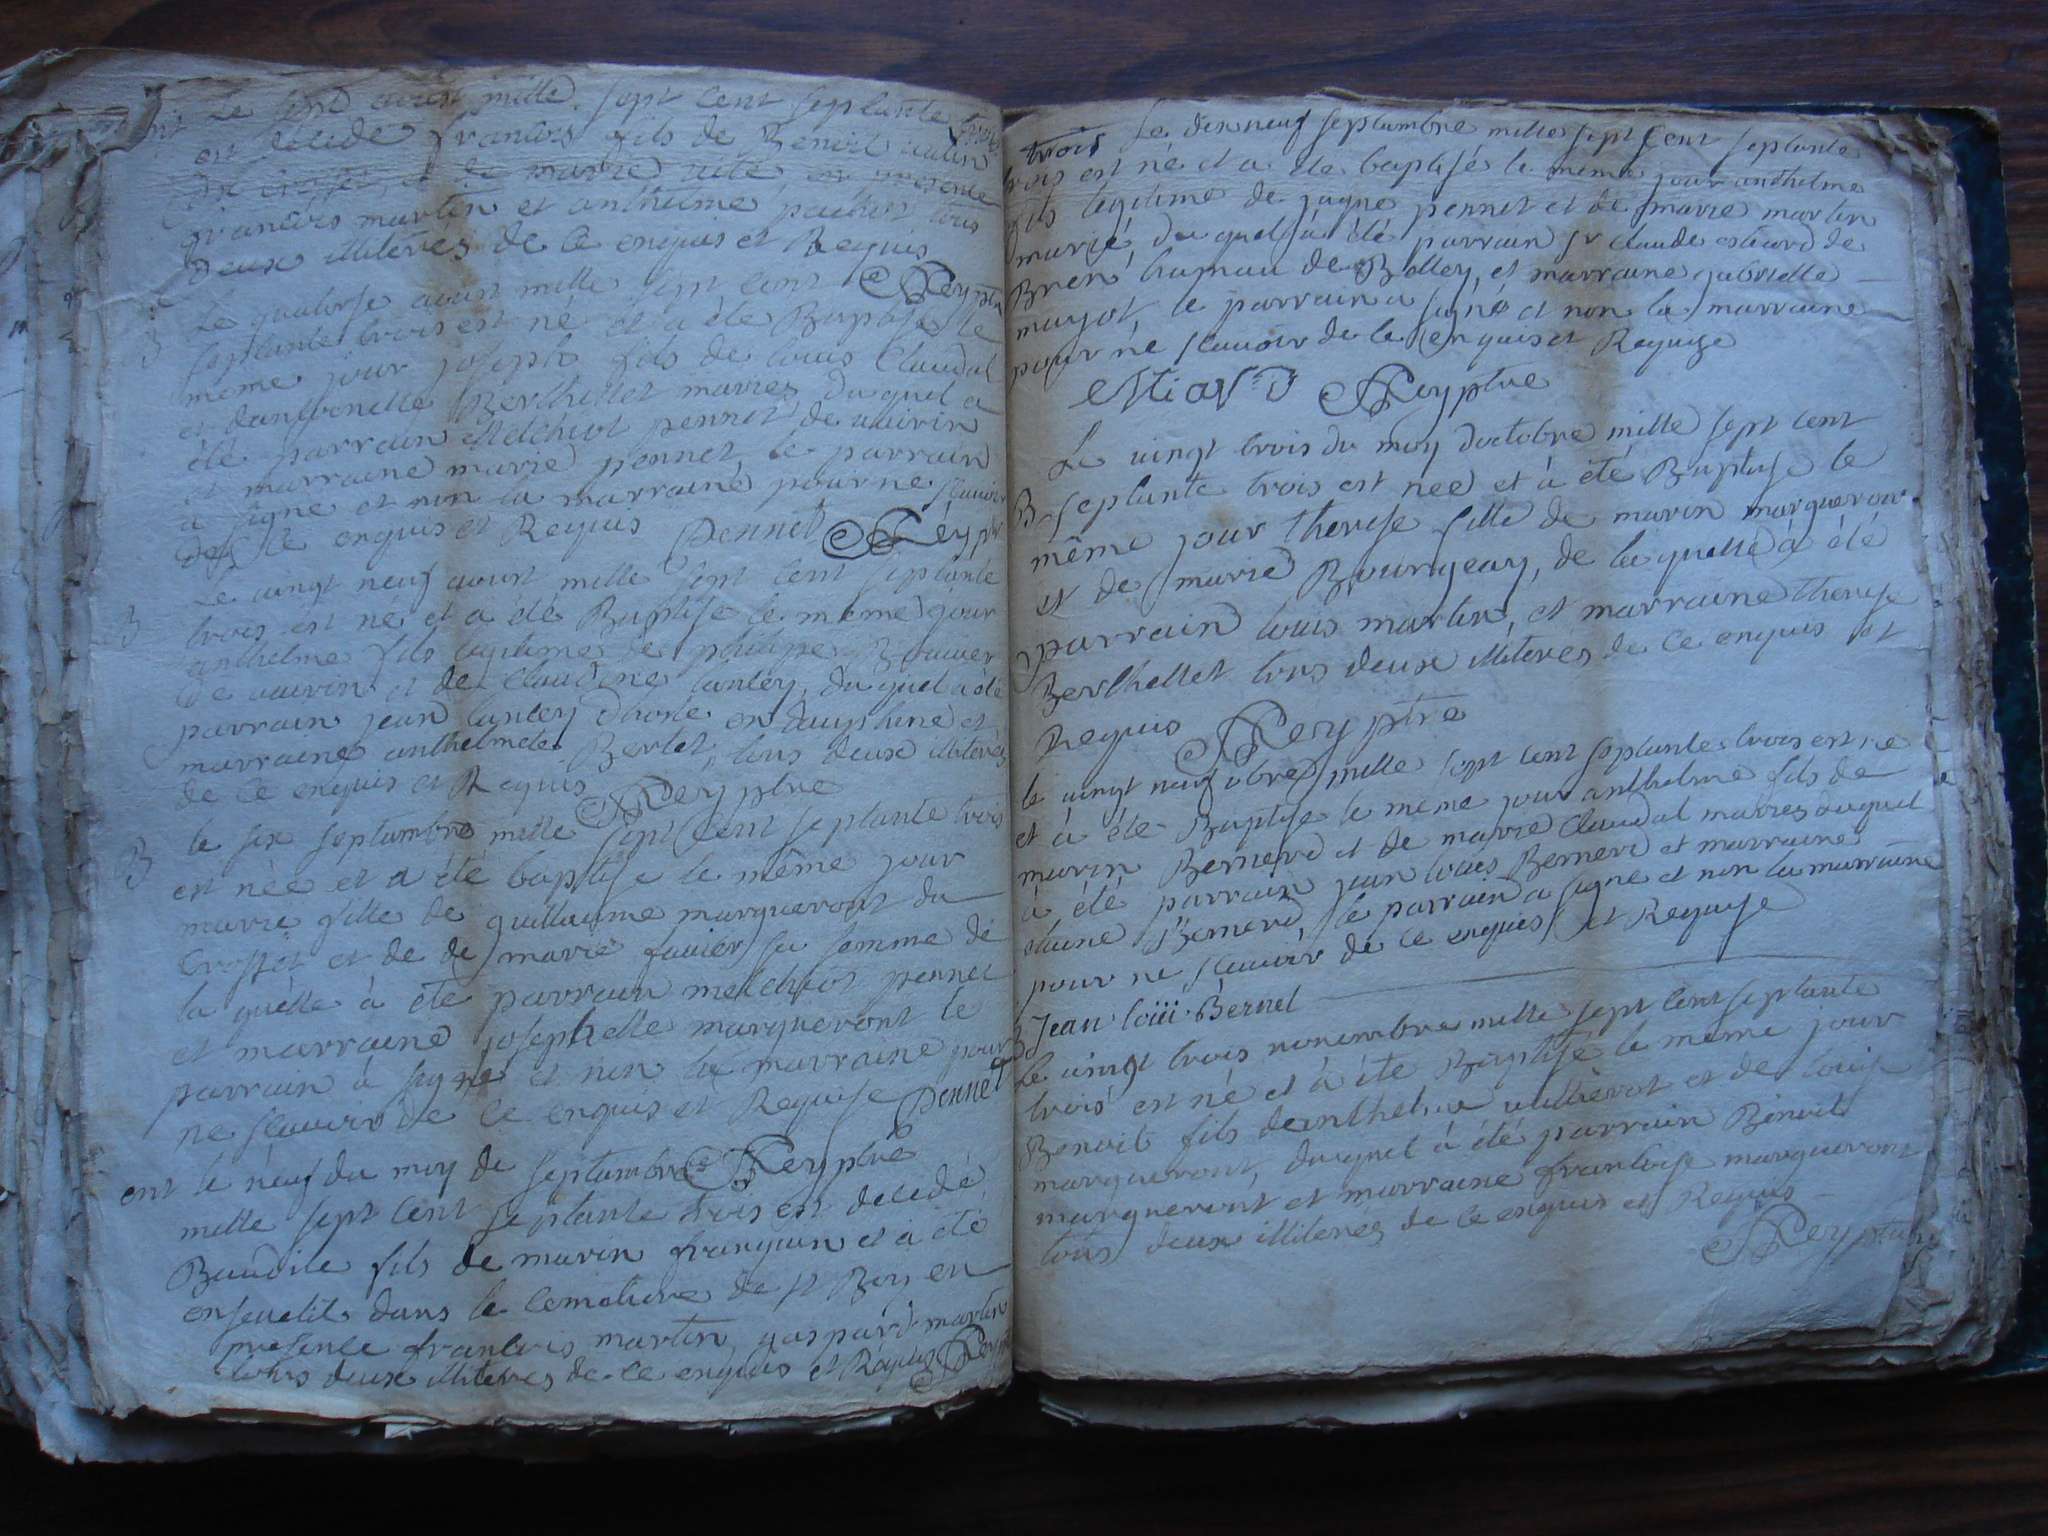 Le sept aoust mille sept cent septante trois
est décédé francois fils de Benoit
du crosset et de marie en presence
francois martin et anthelme pachot tous
deux illiteres de ce enquis et Requis
Reyptre
B
Le quatorse aoust mille sept cent
septante trois est né et a été Baptise le
même jour joseph fils de louis Claudal
et danthonette Berthellet maries, duquel a
été parrain Melchiot pennet de
et marraine marie pennet, le parrain
a signe et non la marraine pour ne scauoir
de ce enquis et Requis Pennet Reyptre
B
Le uingt neuf aoust mille sept cent septante
trois est né et a été Baptise le meme jour
anthelme fils legitime de philipe Bouuier
de et de Claudine lantey, duquel a été
parrain jean lantey en dauphine et
marraine anthelmete Bertet, tous deux illiteres
de ce enquis et Requis Reyptre
B
le six septambre mille sept Cent septante trois
est née et a été baptise le même jour
marie fille de guillaume margueront du
Crosset et de de marie fauier sa femme de
la quelle à été parrain melchiot pennet
et marraine josephette margueront le
parrain à signe et non la marraine pour
ne scauoir de ce enquis et Requise Pennet
Reyptre
ent le neuf du moy de septambre
mille sept cent septante trois est decedé
Baudile fils de marin franquin et a été
enseuelit dans le cemetiere de st Boy en
presence francois martin gaspard martin
tous deux illiteres de ce enquis et Requis Reyptre
trois Le dixneuf septambre mille sept Cent septante
trois est né et a été baptise le même jour anthelme
fils legitime de jaque pennet et de marie martin
marié, du quel à été parrain sr claude de
Bren hamau de Belley, et marraine gabrielle
mayot, le parrain a signé et non la marraine
pour ne scauoir de ce enquis et Requise
Reyptre
Le uingt trois du moy doctobre mille sept cent
B septante trois est née et à été Baptise le
même jour therese fille de marin margueront
et de marie Bourgeay, de la quelle à été
parrain louis martin, et marraine therese
Berthellet tous deux illiteres de ce enquis et
Requis Reyptre
le uingt neuf obre mille sept cent septante trois est né
et à été Baptise le même jour anthelme fils de
marin Bernerd et de marie Claudal maries duquel
à été parrain jean louis Bernerd et marraine
Bernerd, le parrain a signe et non la marraine
pour ne scauoir de ce enquies et Requise
Jean loiii Bernel
Le uingt trois nouembre mille sept Cent septante
trois est né et à été Baptisé le meme jour
Benoit fils deanthelme et de louise
margueront, duquel à été parrain Benoit
margueront et marraine francoise margueront
tous deux illiteres de ce enquis et Requis
Reyptre